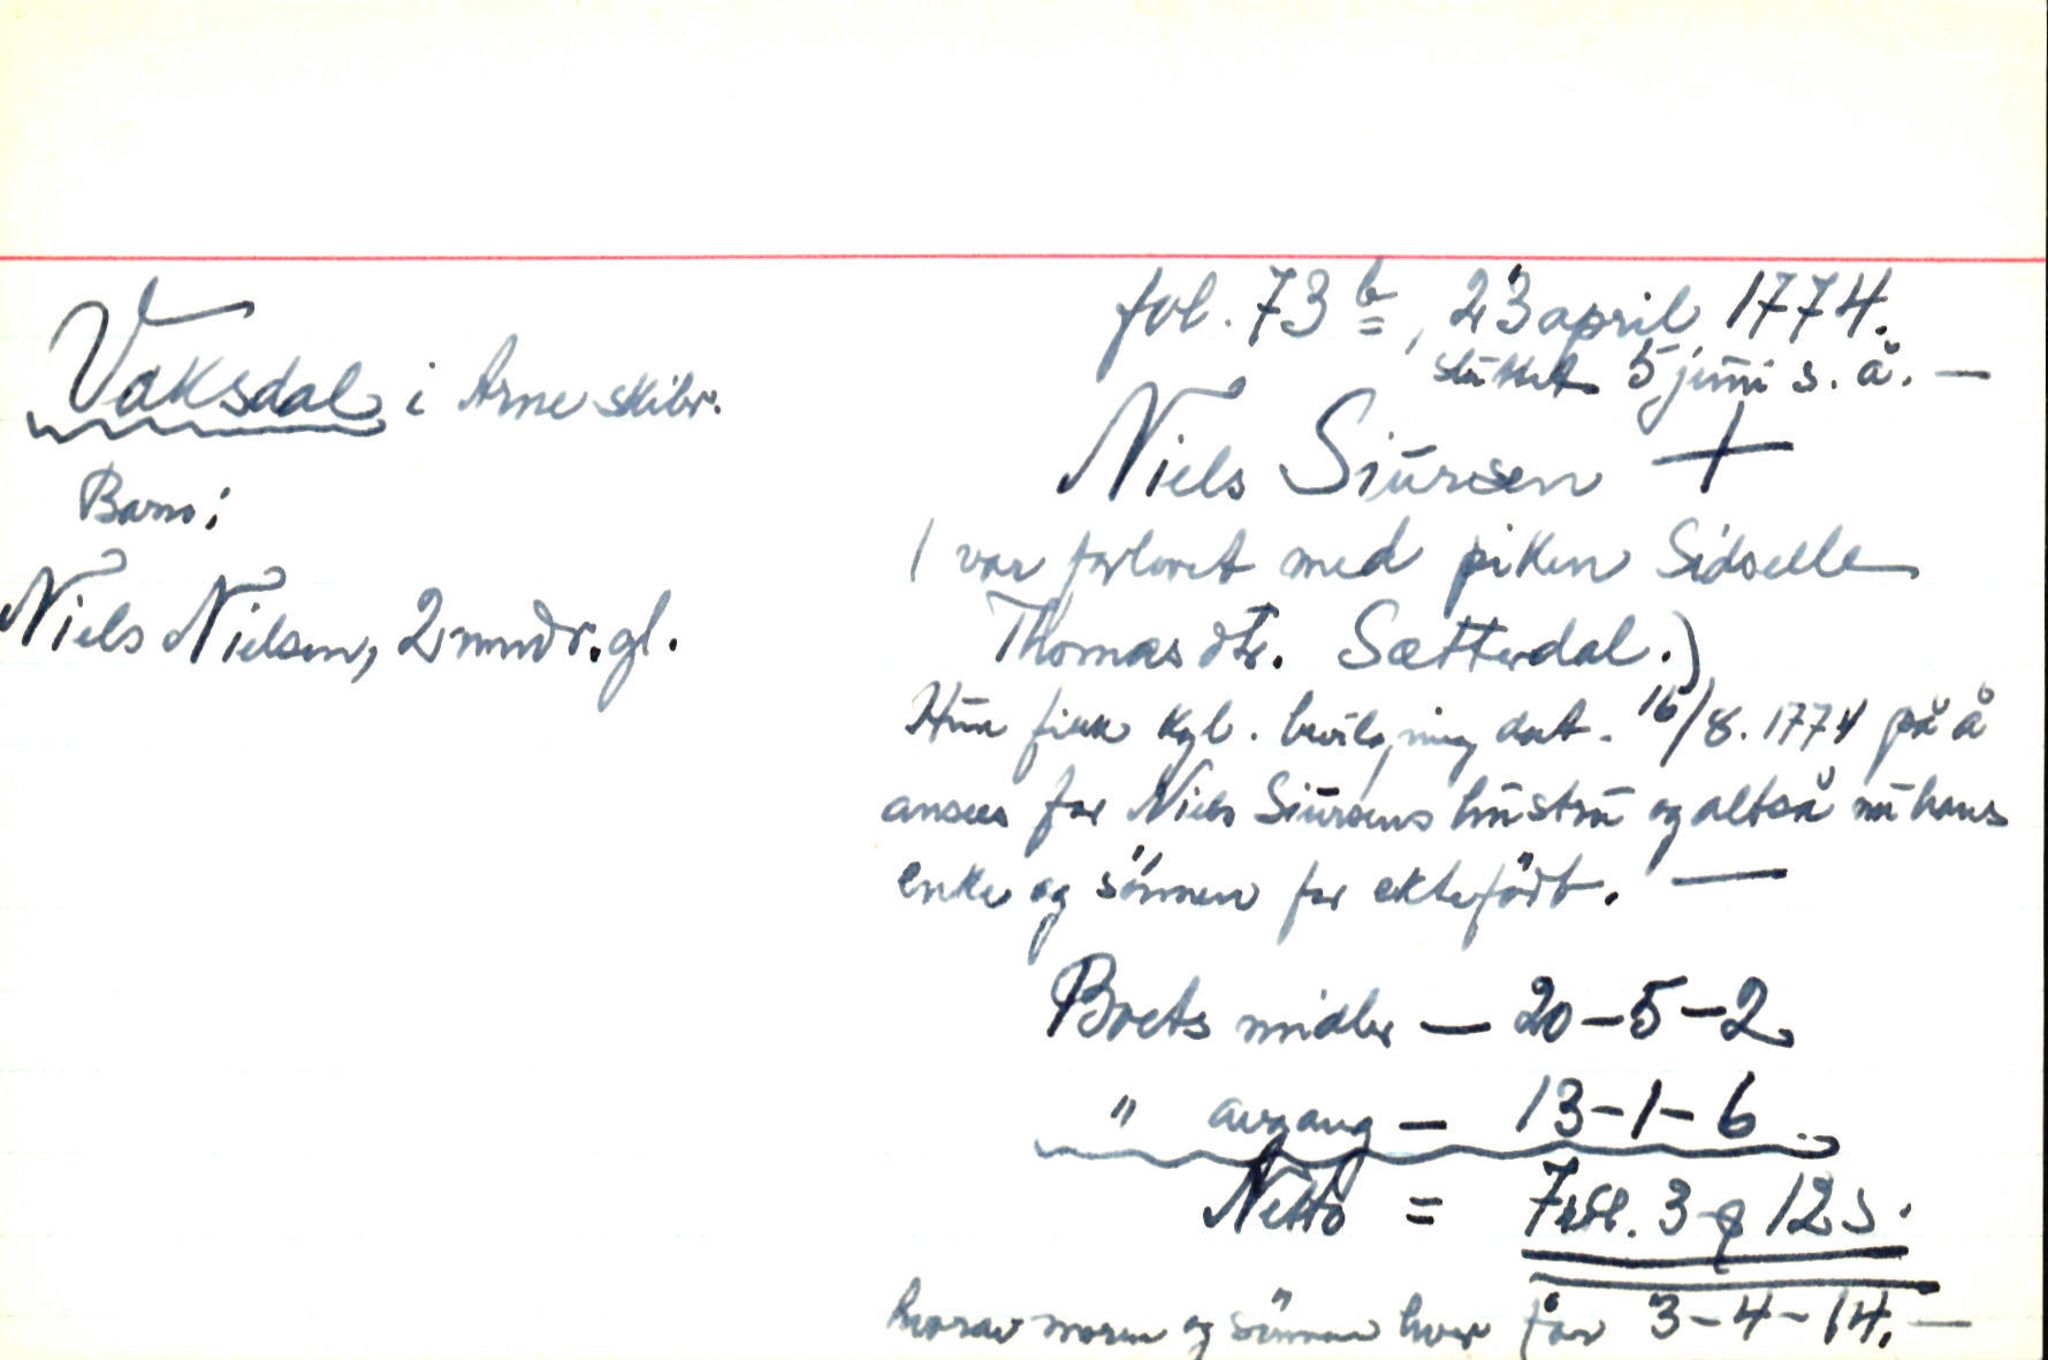 Vaksdal i Arne skibr.
Barn:
Niels Nielsen, 2 mndr. gl.
fol. 73 b, 23 april 1774.
sluttet 5 juni s. å. —
Niels Siursen +
( var forlovet med piken Sidselle
Thomasdtr. Sætterdal.)
Hun fikk kgl. bevilgning dat. 16/8. 1774 på å
ansees for Niels Siursens hustru og altså nu hans
enke og sønnen for ektefødt. —
Boets midler — 20-5-2
" avgang — 13-1-6
Netto = 7 rdl. 3 12 s.
hvorav moren og sønnen hver får 3-4-14. —